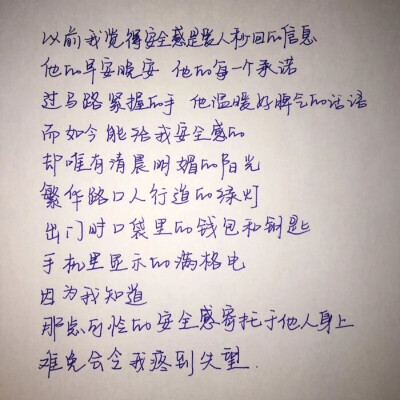 以前我觉得安全感是爱人秒回的信息
他的早安晚安 他的每一个承诺
过马路紧握的手 他温暖好脾气的话语
而如今能给我安全感的
却唯有清晨明媚的阳光
繁华路口人行道的绿灯
出门时口袋里的钱包和钥匙
手机里显示的满格电
因为我知道
那怠可怜的安全感寄托于他人身上
难免会令我疼到失望.